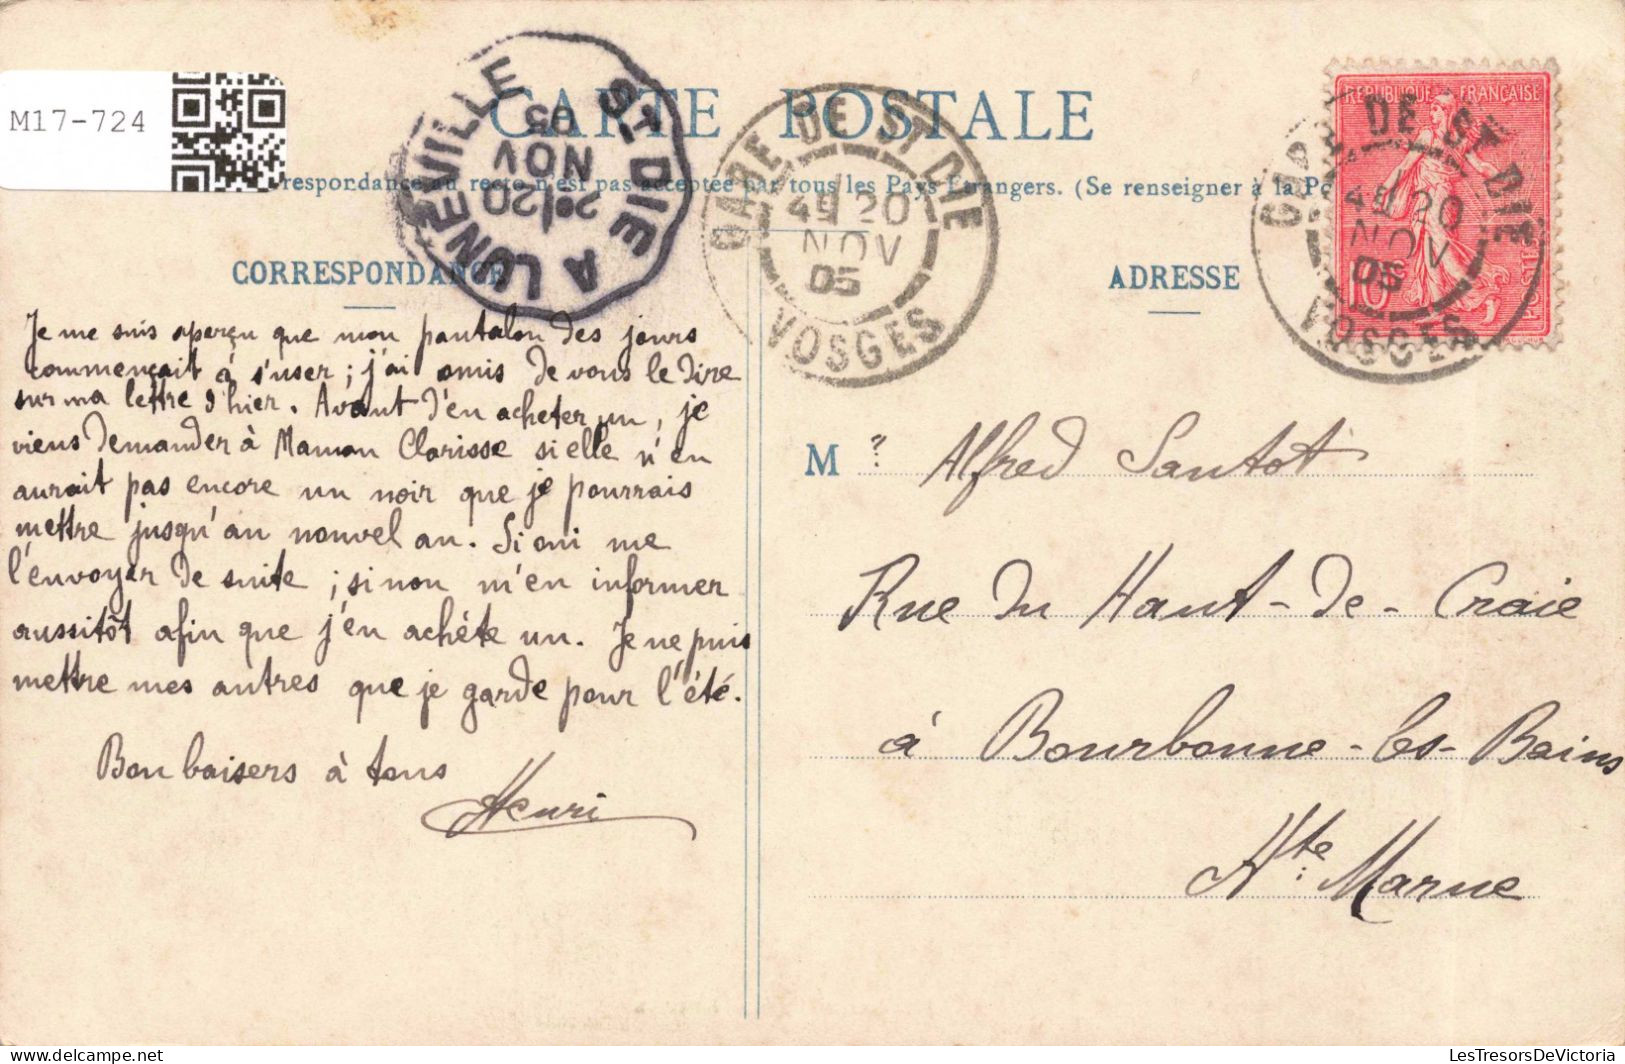 M17-724
CARTE POSTALE
respondance au recto n'est pas acceptée par tous les Pays Etrangers. (Se renseigner à la Po
CORRESPONDANCE
Je me suis aperçu que mon pantalon des jours
commençait à s'user ; j'ai omis de vous le dire
sur ma lettre d'hier. Avant d'en acheter un, je
viens demander à Maman Clarisse si elle n'en
aurait pas encore un noir que je pourrais
mettre jusqu'au nouvel an. Si oui me
l'envoyer de suite ; si non m'en informer
aussitôt afin que j'en achète un. Je ne puis
mettre mes autres que je garde pour l'été.
Bon baisers à tous
Henri
ST-DIE A LUNÉVILLE
2e/20
NOV
05
GARE DE ST DIE
4E 20
NOV
05
VOSGES
ADRESSE
REPUBLIQUE FRANÇAISE
10
POSTES
DE ST DIE
4E 20
NOV
05
VOSGES
M r Alfred Santot
Rue du Haut-de-Craie
à Bourbonne-les-Bains
Hte Marne
delcampe.net
LesTresorsDeVictoria